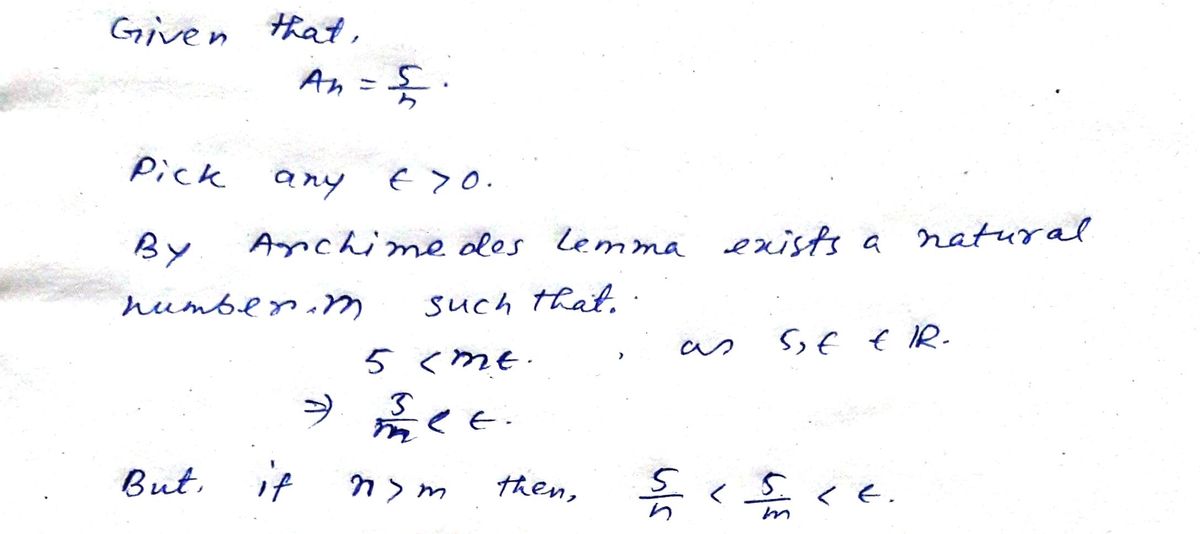 Given that,
An = 5/n.
Pick any ϵ > 0.
By Archimedes Lemma exists a natural
number m such that.
5 < mϵ. , as 5, ϵ ∈ ℝ.
⇒ 5/m < ϵ.
But, if n > m then, 5/n < 5/m < ϵ.